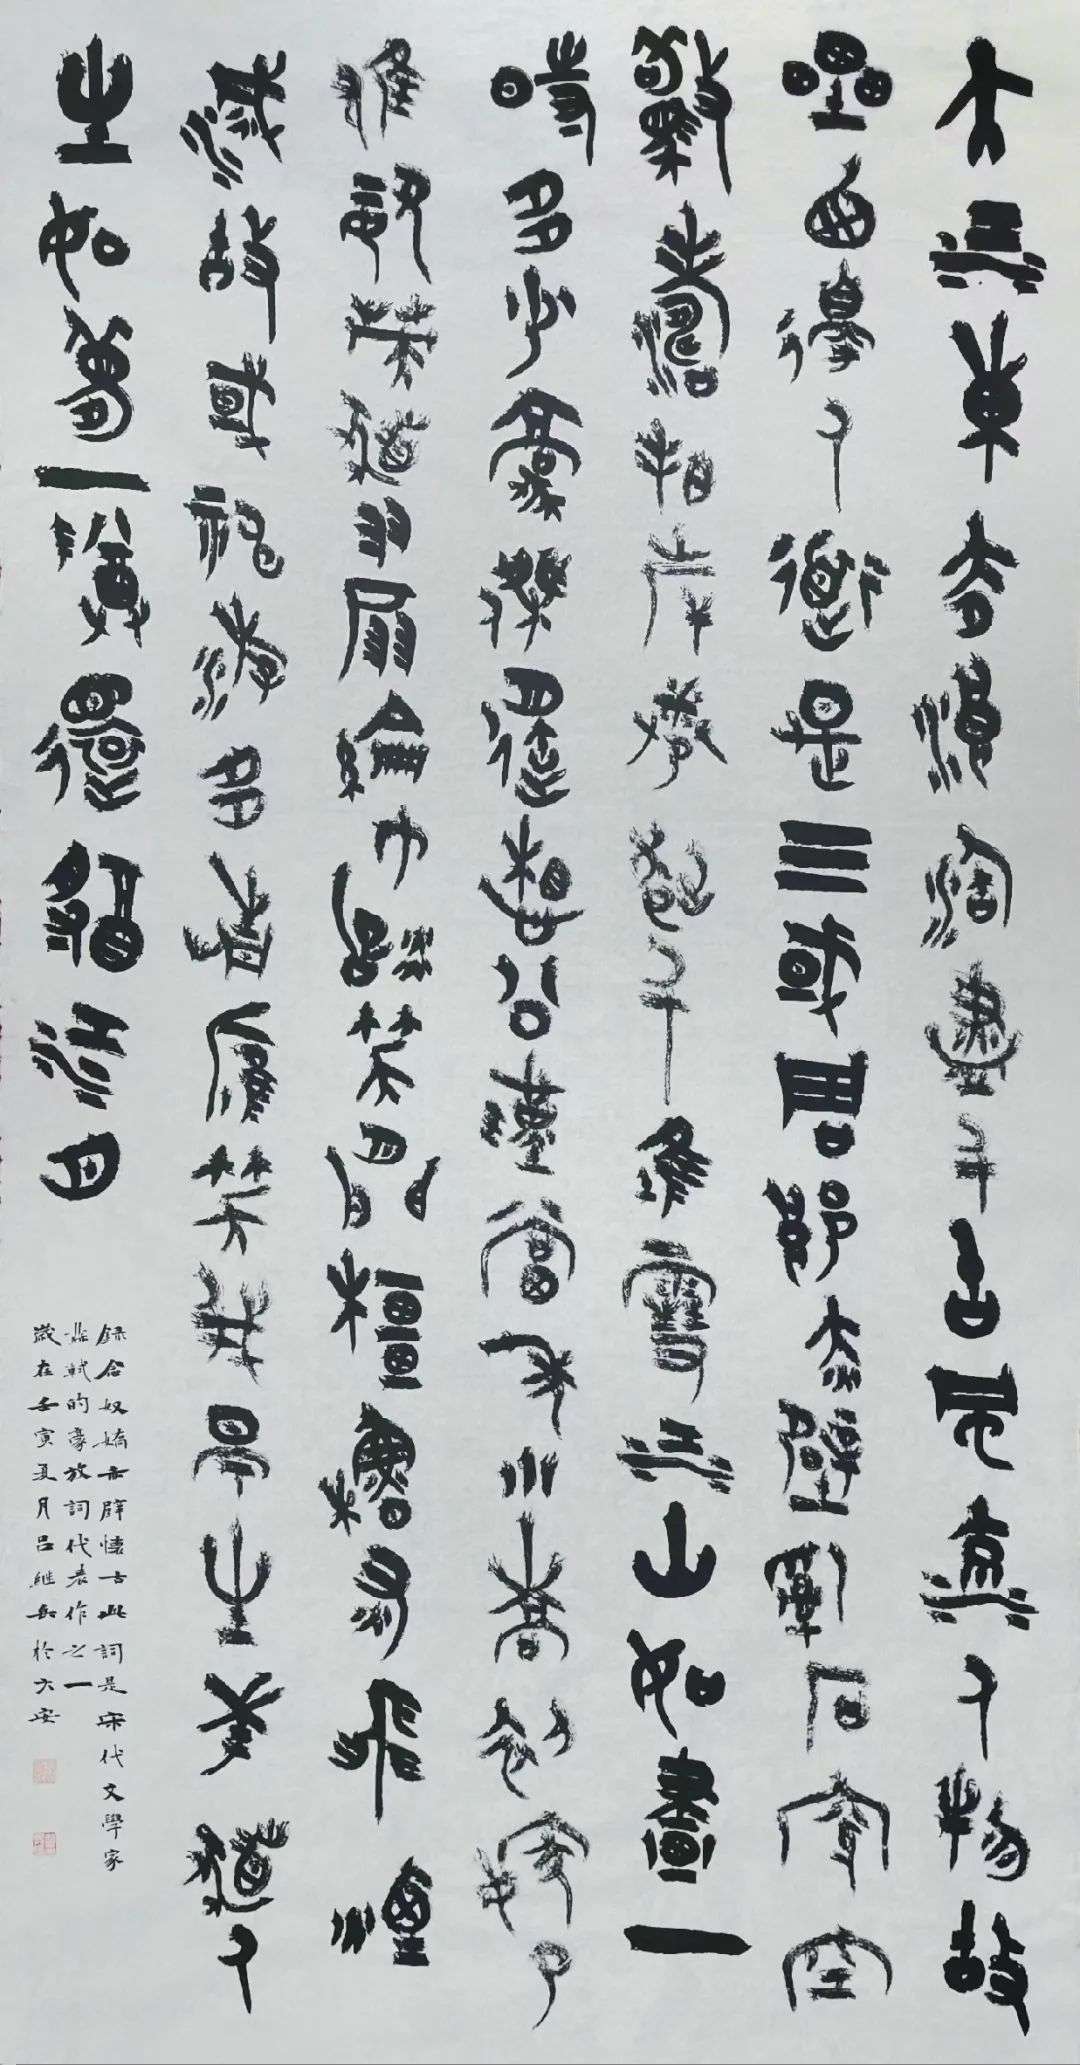 大江東去浪淘盡千古風流人物故
壘西邊人道是三國周郎赤壁亂石穿空
驚濤拍岸捲起千堆雪江山如畫一
時多少豪傑遙想公瑾當年小喬初嫁了
雄姿英發羽扇綸巾談笑間檣櫓灰飛煙
滅故國神游多情應笑我早生華髮人
生如夢一樽還酹江月
錄念奴嬌赤壁懷古此詞是宋代文學家
蘇軾的豪放詞代表作之一
歲在壬寅夏月呂繼於六安